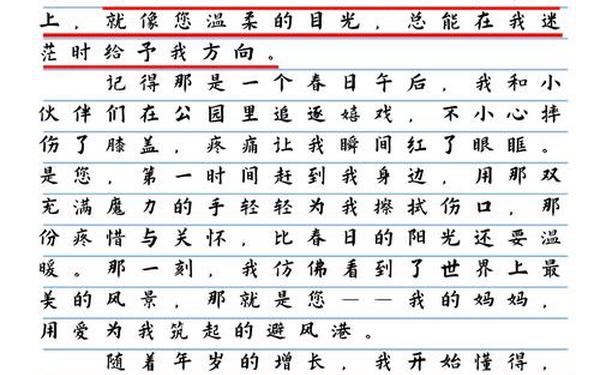 上，就像您温柔的目光，总能在我迷
茫时给予我方向。
记得那是一个春日午后，我和小
伙伴们在公园里追逐嬉戏，不小心摔
伤了膝盖，疼痛让我瞬间红了眼眶。
是您，第一时间赶到我身边，用那双
充满魔力的手轻轻为我擦拭伤口，那
份疼惜与关怀，比春日的阳光还要温
暖。那一刻，我仿佛看到了世界上最
美的风景，那就是您——我的妈妈，
用爱为我筑起的避风港。
随着年岁的增长，我开始懂得，